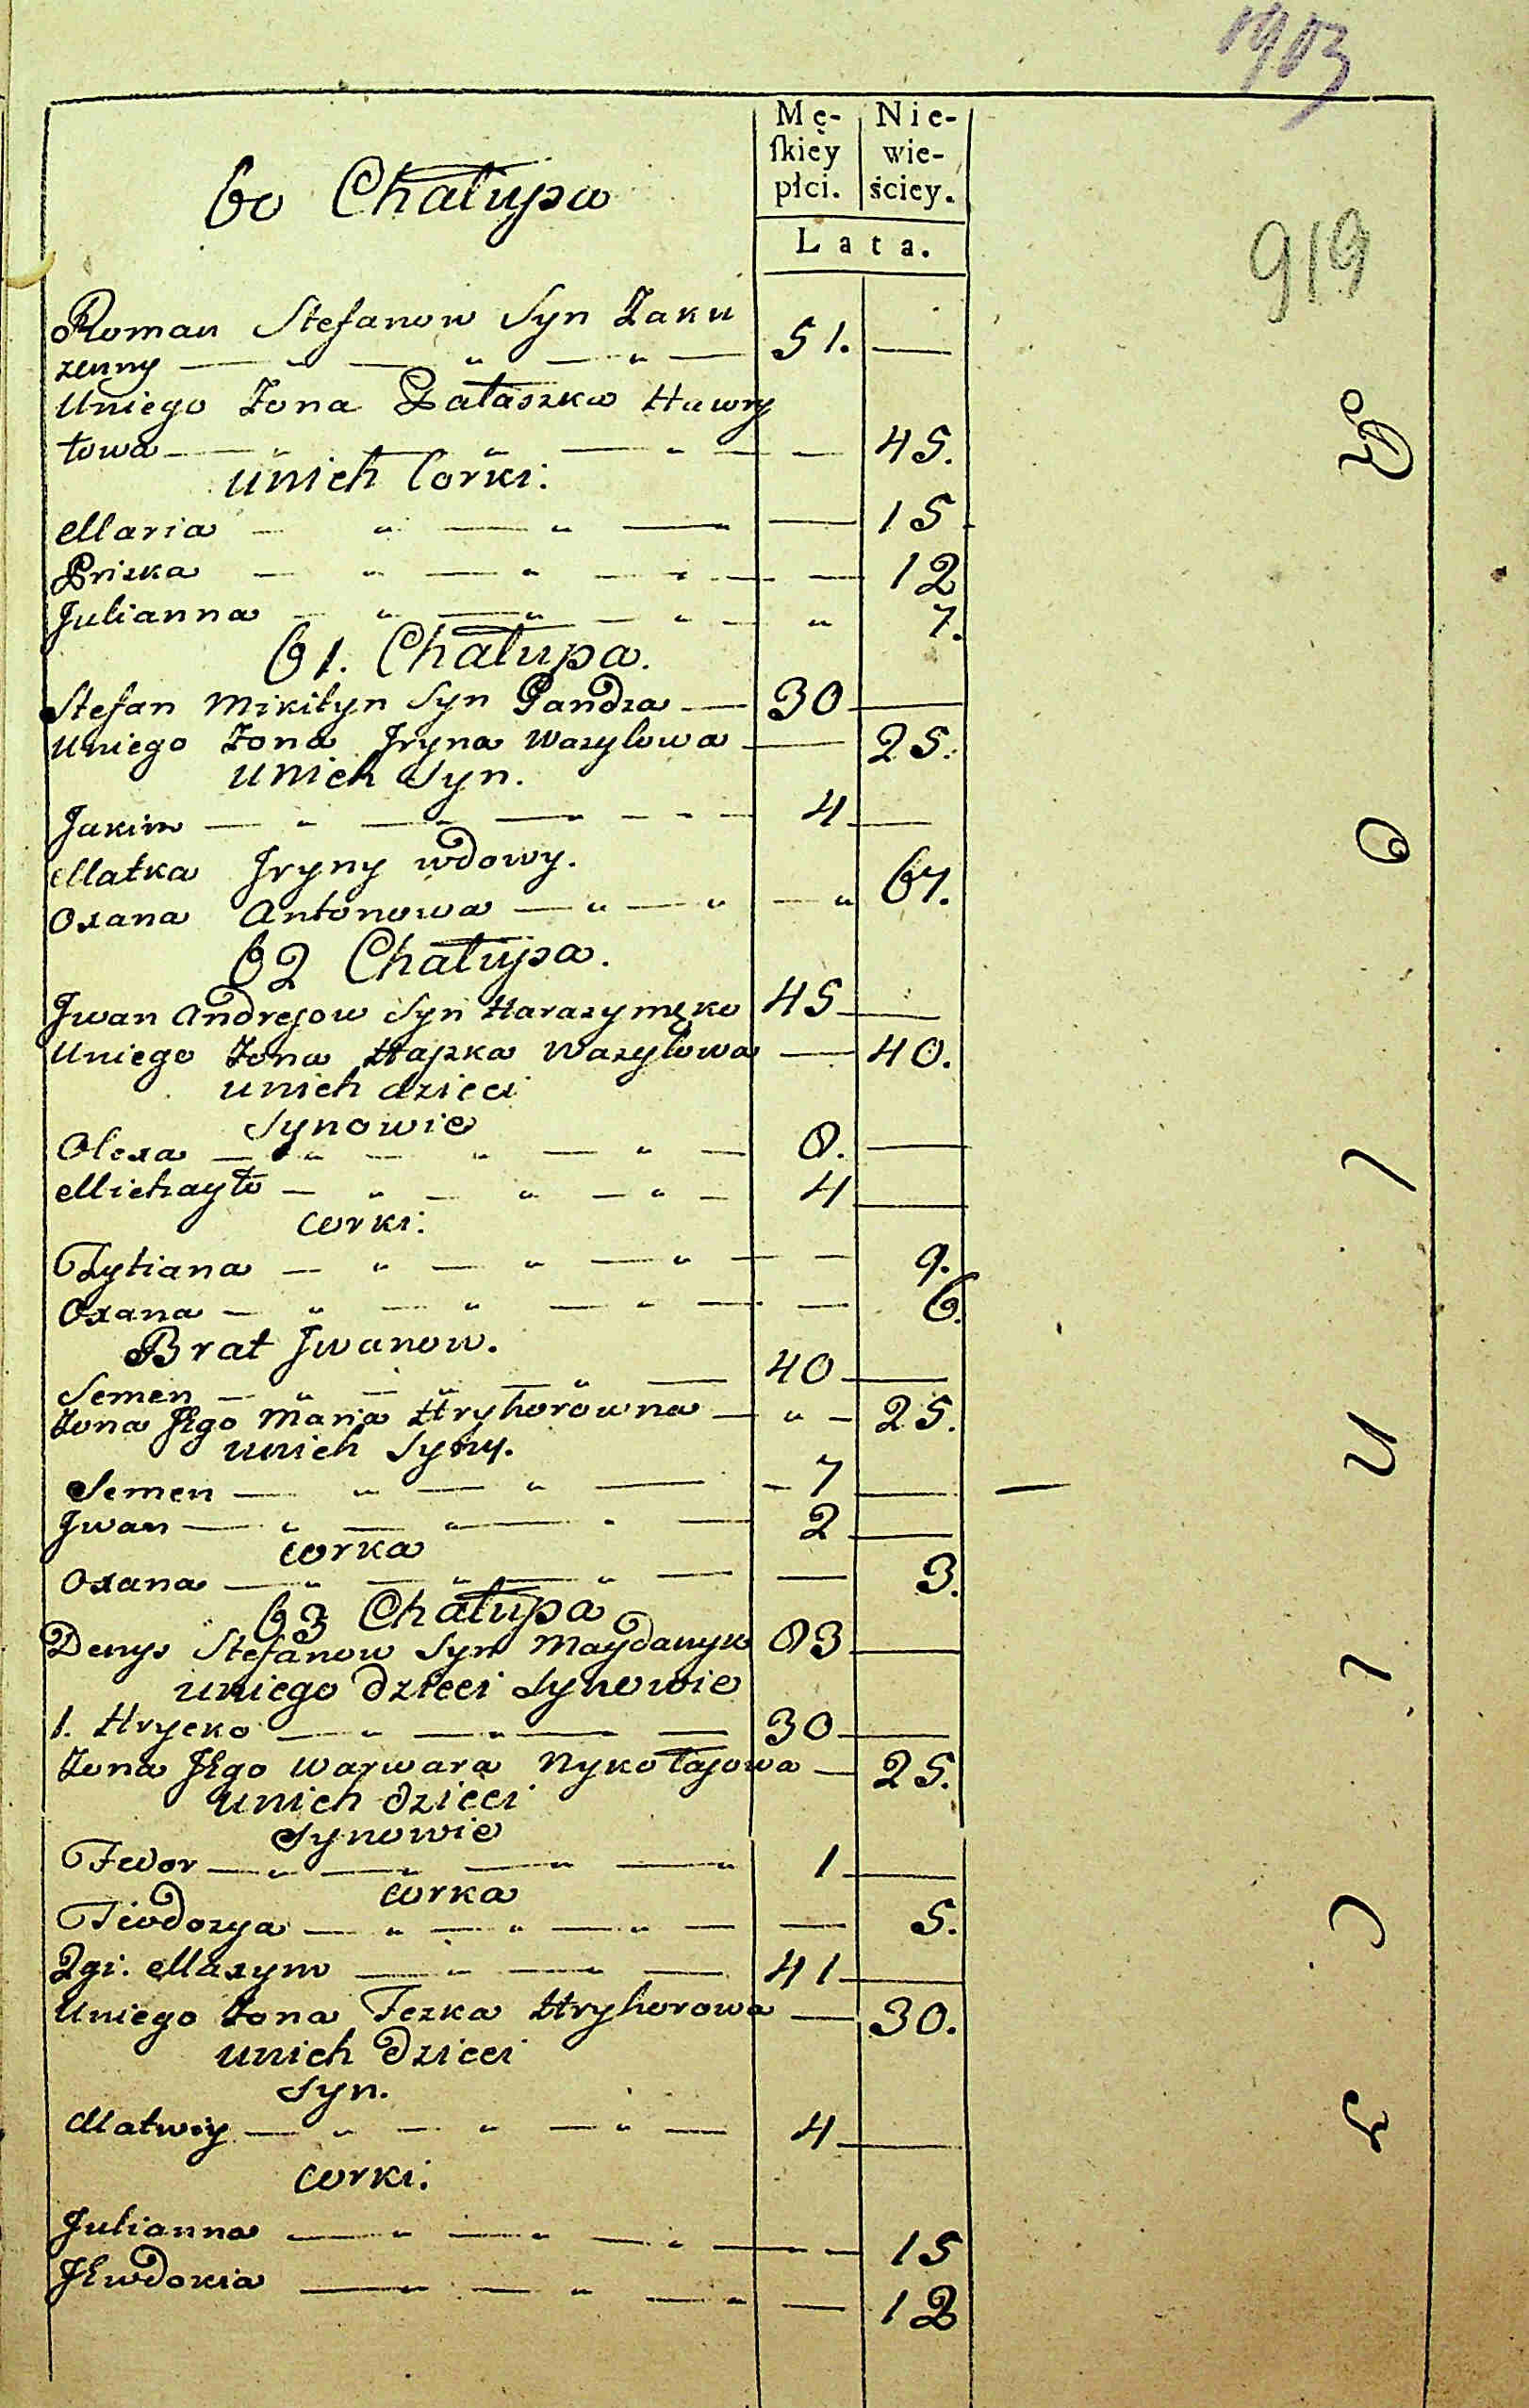 1903
Mę- Nie-
ſkiey wie-
płci. ściey.
Lata.
919
60 Chałupa
Roman Stefanow Syn Zaku
rzenny — „ — „ — „ — 51. —
Uniego Żona Pałaszka Hawry
łowa — „ — „ — „ — — 45.
unich Corki:
Maria — „ — „ — — 15.
Priska — „ — „ — „ — — 12
Julianna — „ — „ — „ — „ 7.
61. Chałupa.
Stefan Mikityn Syn Pandza — 30 —
Uniego Żona Jryna Wasylowa — 25.
unich Syn.
Jakim — „ — „ — 4 —
Matka Jryny wdowy.
Oxana Antonowa — „ — „ — „ 67.
62 Chałupa.
Jwan Andrejow Syn Harasymęko 45 —
Uniego Żona Hapka Wasylowa — 40.
unich dzieci
Synowie
Olexa — „ — „ — „ — 8. —
Michayło — „ — „ — „ — 4 —
Corki:
Tytiana — „ — „ — „ — — 9.
Oxana — „ — „ — „ — — 6.
Brat Jwanow.
Semen — „ — „ — „ — 40 —
Żona Jego Maria Hryhorowna — „ — 25.
unich Syny.
Semen — „ — „ — 7 — —
Jwan — „ — „ — 2 —
Corka
Oxana — „ — „ — „ — — 3.
63 Chałupa
Denys Stefanow Syn Maydanyk 83 —
uniego dzieci Synowie
1. Hrycko — „ — „ — 30 —
Żona Jego Warwara Nykołajowa — 25.
unich dzieci
Synowie
Fedor — „ — „ — „ — „ 1 —
Corka
Teodozya — „ — „ — „ — — 5.
2gi. Maxym — „ — „ — 41 —
Uniego Żona Teska Hryhorowa — 30.
unich dzieci
Syn.
Matwiy — „ — „ — „ — 4 —
Corki.
Julianna — „ — „ — „ — — 15
Jewdokia — „ — „ — „ — 12